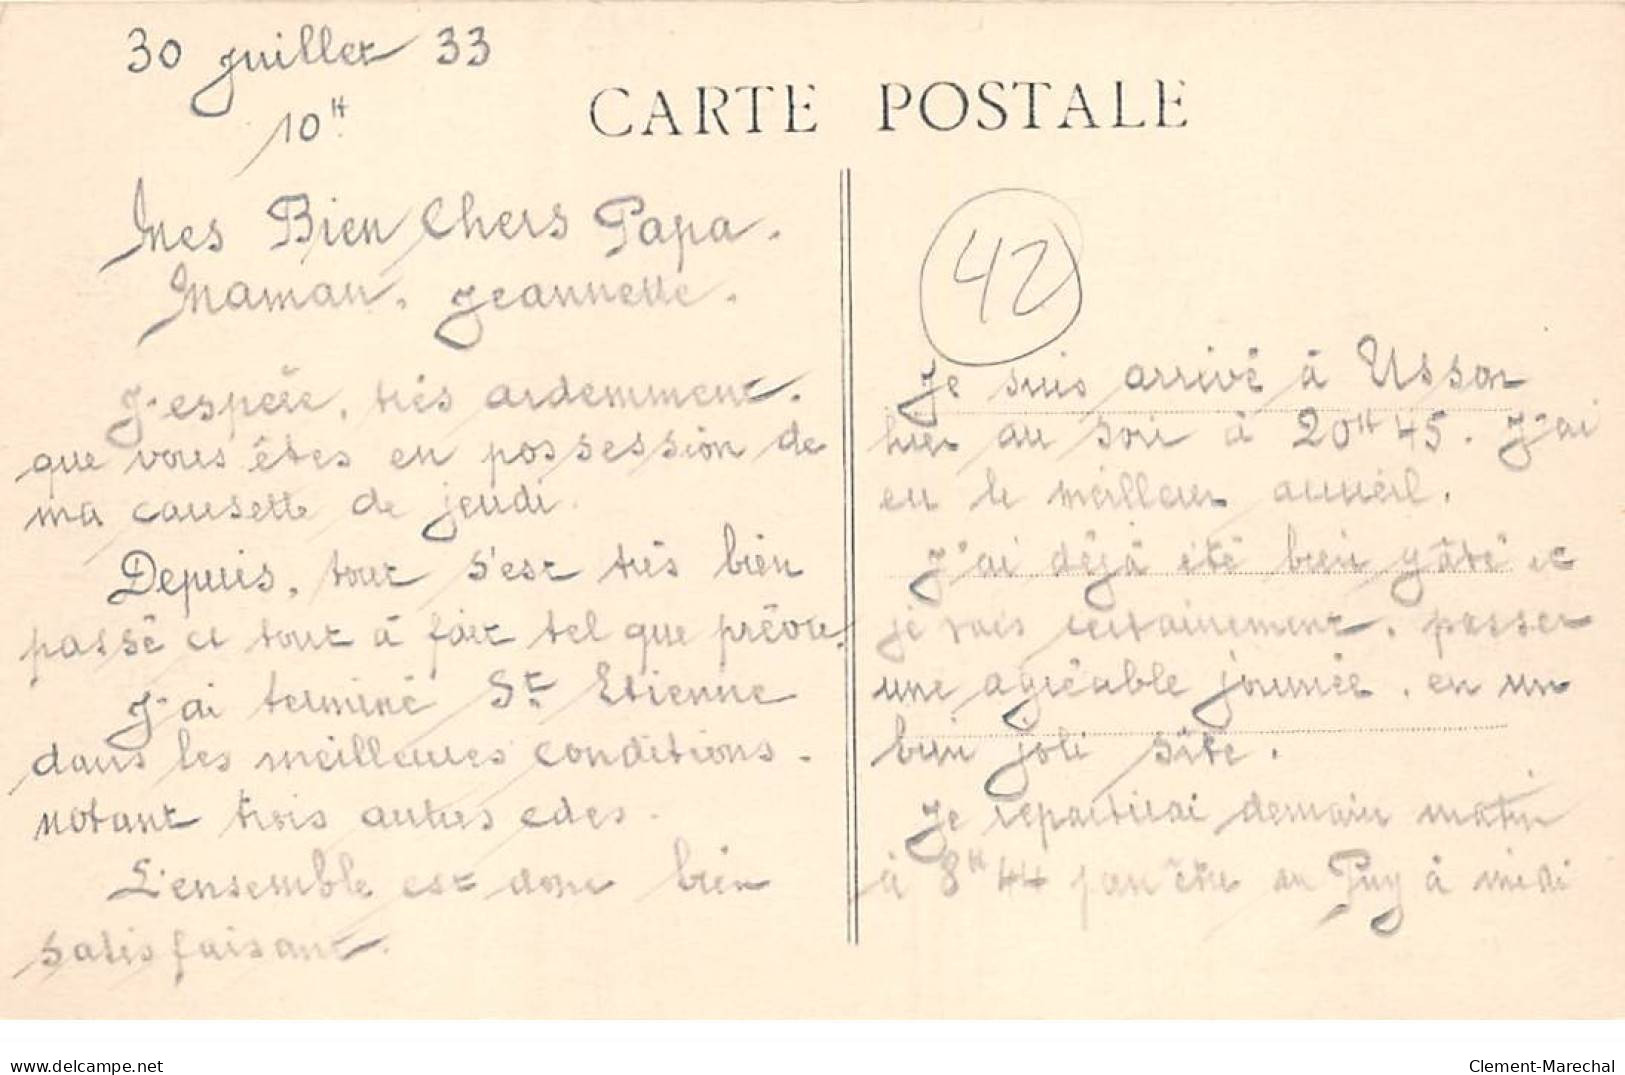 30 juillet 33
10H
CARTE POSTALE
Mes Bien Chers Papa.
Maman. Jeannette.
J'espère, très ardemment.
que vous êtes en possession de
ma causette de jeudi.
Depuis, tout s'est très bien
passé et tout à fait tel que prévu.
J'ai terminé St Etienne
dans les meilleures conditions.
notant trois autres cdes.
L'ensemble est donc bien
satisfaisant.
42
Je suis arrivé à Usson
hier au soir à 20H45. J'ai
eu le meilleur accueil.
J'ai déjà été bien gâté et
je vais certainement. passer
une agréable journée. en un
bien joli site.
Je repartirai demain matin
à 8H44 pour être au Puy à midi
www.delcampe.net
Clement-Marechal